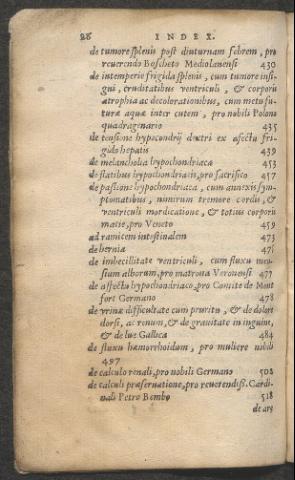 28 INDEX.
de tumore splenis post diuturnam febrem, pro
reuerendo Boscheto Mediolanensi 430
de intemperie frigida splenis, cum tumore insi-
gni, cruditatibus ventriculi, & corporis
atrophia ac decolorationibus, cum metu fu-
turæ aquæ inter cutem, pro nobili Polono
quadragenario 435
de tensione hypocondrij dextri ex affectu fri-
gido hepatis 439
de melancholia hypochondriaca 453
de flatibus hypochondriacis, pro sacrifico 457
de passione hypochondriaca, cum annexis sym-
ptomatibus, nimirum tremore cordis, &
ventriculi mordicatione, & totius corporis
macie, pro Veneto 459
ad ramicem intestinalem 473
de hernia 476
de imbecillitate ventriculi, cum fluxu men-
sium alborum, pro matrona Veronensi 477
de affectu hypochondriaco, pro Comite de Mont
fort Germano 478
de vrinæ difficultate cum pruritu, & de dolore
dorsi, ac renum, & de grauitate in inguine,
& de lue Gallica 484
de fluxu hæmorrhoidum, pro muliere nobili
497
de calculo renali, pro nobili Germano 508
de calculi præseruatione, pro reuerendiss. Cardi-
nali Petro Bembo 518
de are